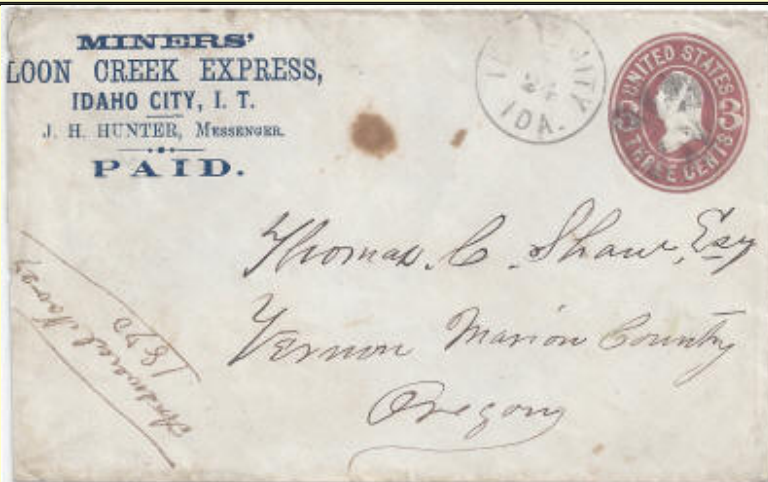 MINERS'
LOON CREEK EXPRESS,
IDAHO CITY, I. T.
J. H. HUNTER, MESSENGER.
PAID.
CITY
24
IDA.
UNITED STATES
3 3
THREE CENTS
Thomas. C. Shaw, Esq
Vernon Marion County
Oregon
Answered
1870